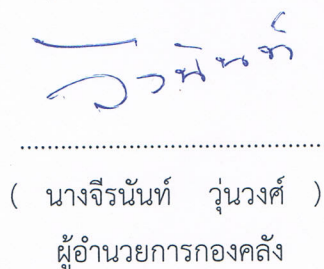 จีรนันท์
........................................
( นางจีรนันท์ วุ่นวงศ์ )
ผู้อำนวยการกองคลัง